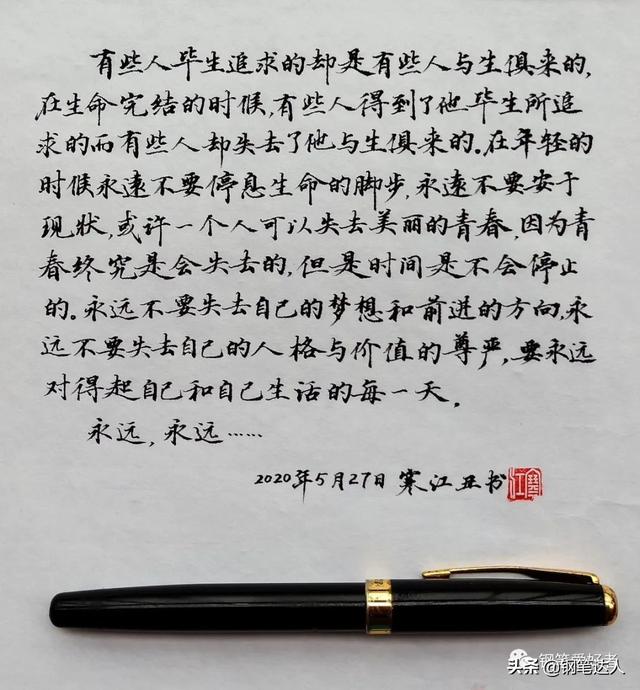 有些人毕生追求的却是有些人与生俱来的,
在生命完结的时候,有些人得到了他毕生所追
求的而有些人却失去了他与生俱来的.在年轻的
时候永遠不要停息生命的脚步,永遠不要安于
现狀,或许一个人可以失去美丽的青春,因为青
春终究是会失去的,但是时间是不会停止
的.永远不要失去自己的梦想和前进的方向,永
远不要失去自己的人格与价值的尊严,要永远
对得起自己和自己生活的每一天.
永远,永远……
2020年5月27日 寒江 书
寒江
钢笔爱好者
头条@钢笔达人